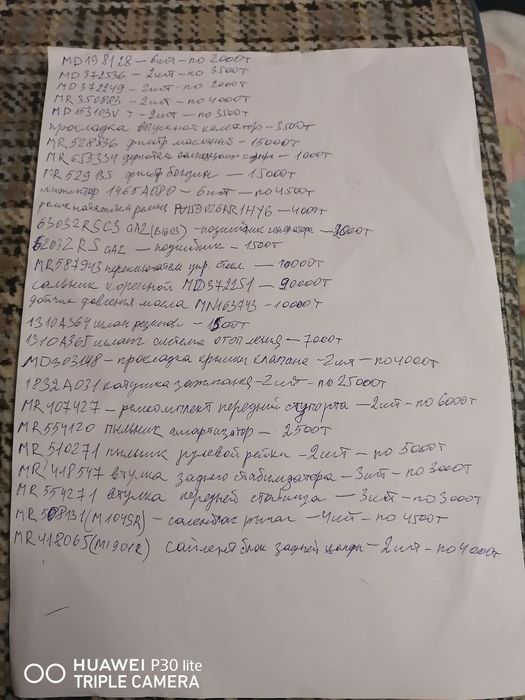 MD198128 – 6шт – по 2000т
MD372536 – 2шт – по 3500т
MD372249 – 2шт – по 2000т
MR350883 – 2шт – по 4000т
MD153103V T – 2шт – по 3500т
прокладка впускной колектор – 3500т
MR528836 фильтр масляный – 15000т
MR655334 – 1000т
MR529135 фильтр бензин – 15000т
инжектор 1465A080 – 6шт – по 4500т
ремня 1HY6 – 4000т
63032RSC3 GA2 (B1603) – подшибник генератора –
62032RS GA2 – подшибник – 1500т
MR587943 переключатель упр. стекл. – 10000т
сальник коренной MD372251 –
датчик довления масла MN163743 – 10000т
1310A364 шланг резинов – 1500т
1310A365 шланг система отопления – 7000т
MD303148 – прокладка крышки клапана – 2шт – по 4000т
1832A031 катушка зажигания – 2шт – по 25000т
MR407427 – ремкомплект передний супорта – 2шт – по 6000т
MR554120 пыльник амартизатор – 2500т
MR510271 пыльник рулевой рейки – 2шт – по 5000т
MR418547 втулка заднего стабилизатора – 3шт – по 3000т
MR554271 втулка передней – 3шт – по 3000т
MR508131 (M1045R) – рычаг – 4шт – по 4500т
MR418065 (M1901R) сайлент блок задней – 2шт – по 4000т
HUAWEI P30 lite
TRIPLE CAMERA